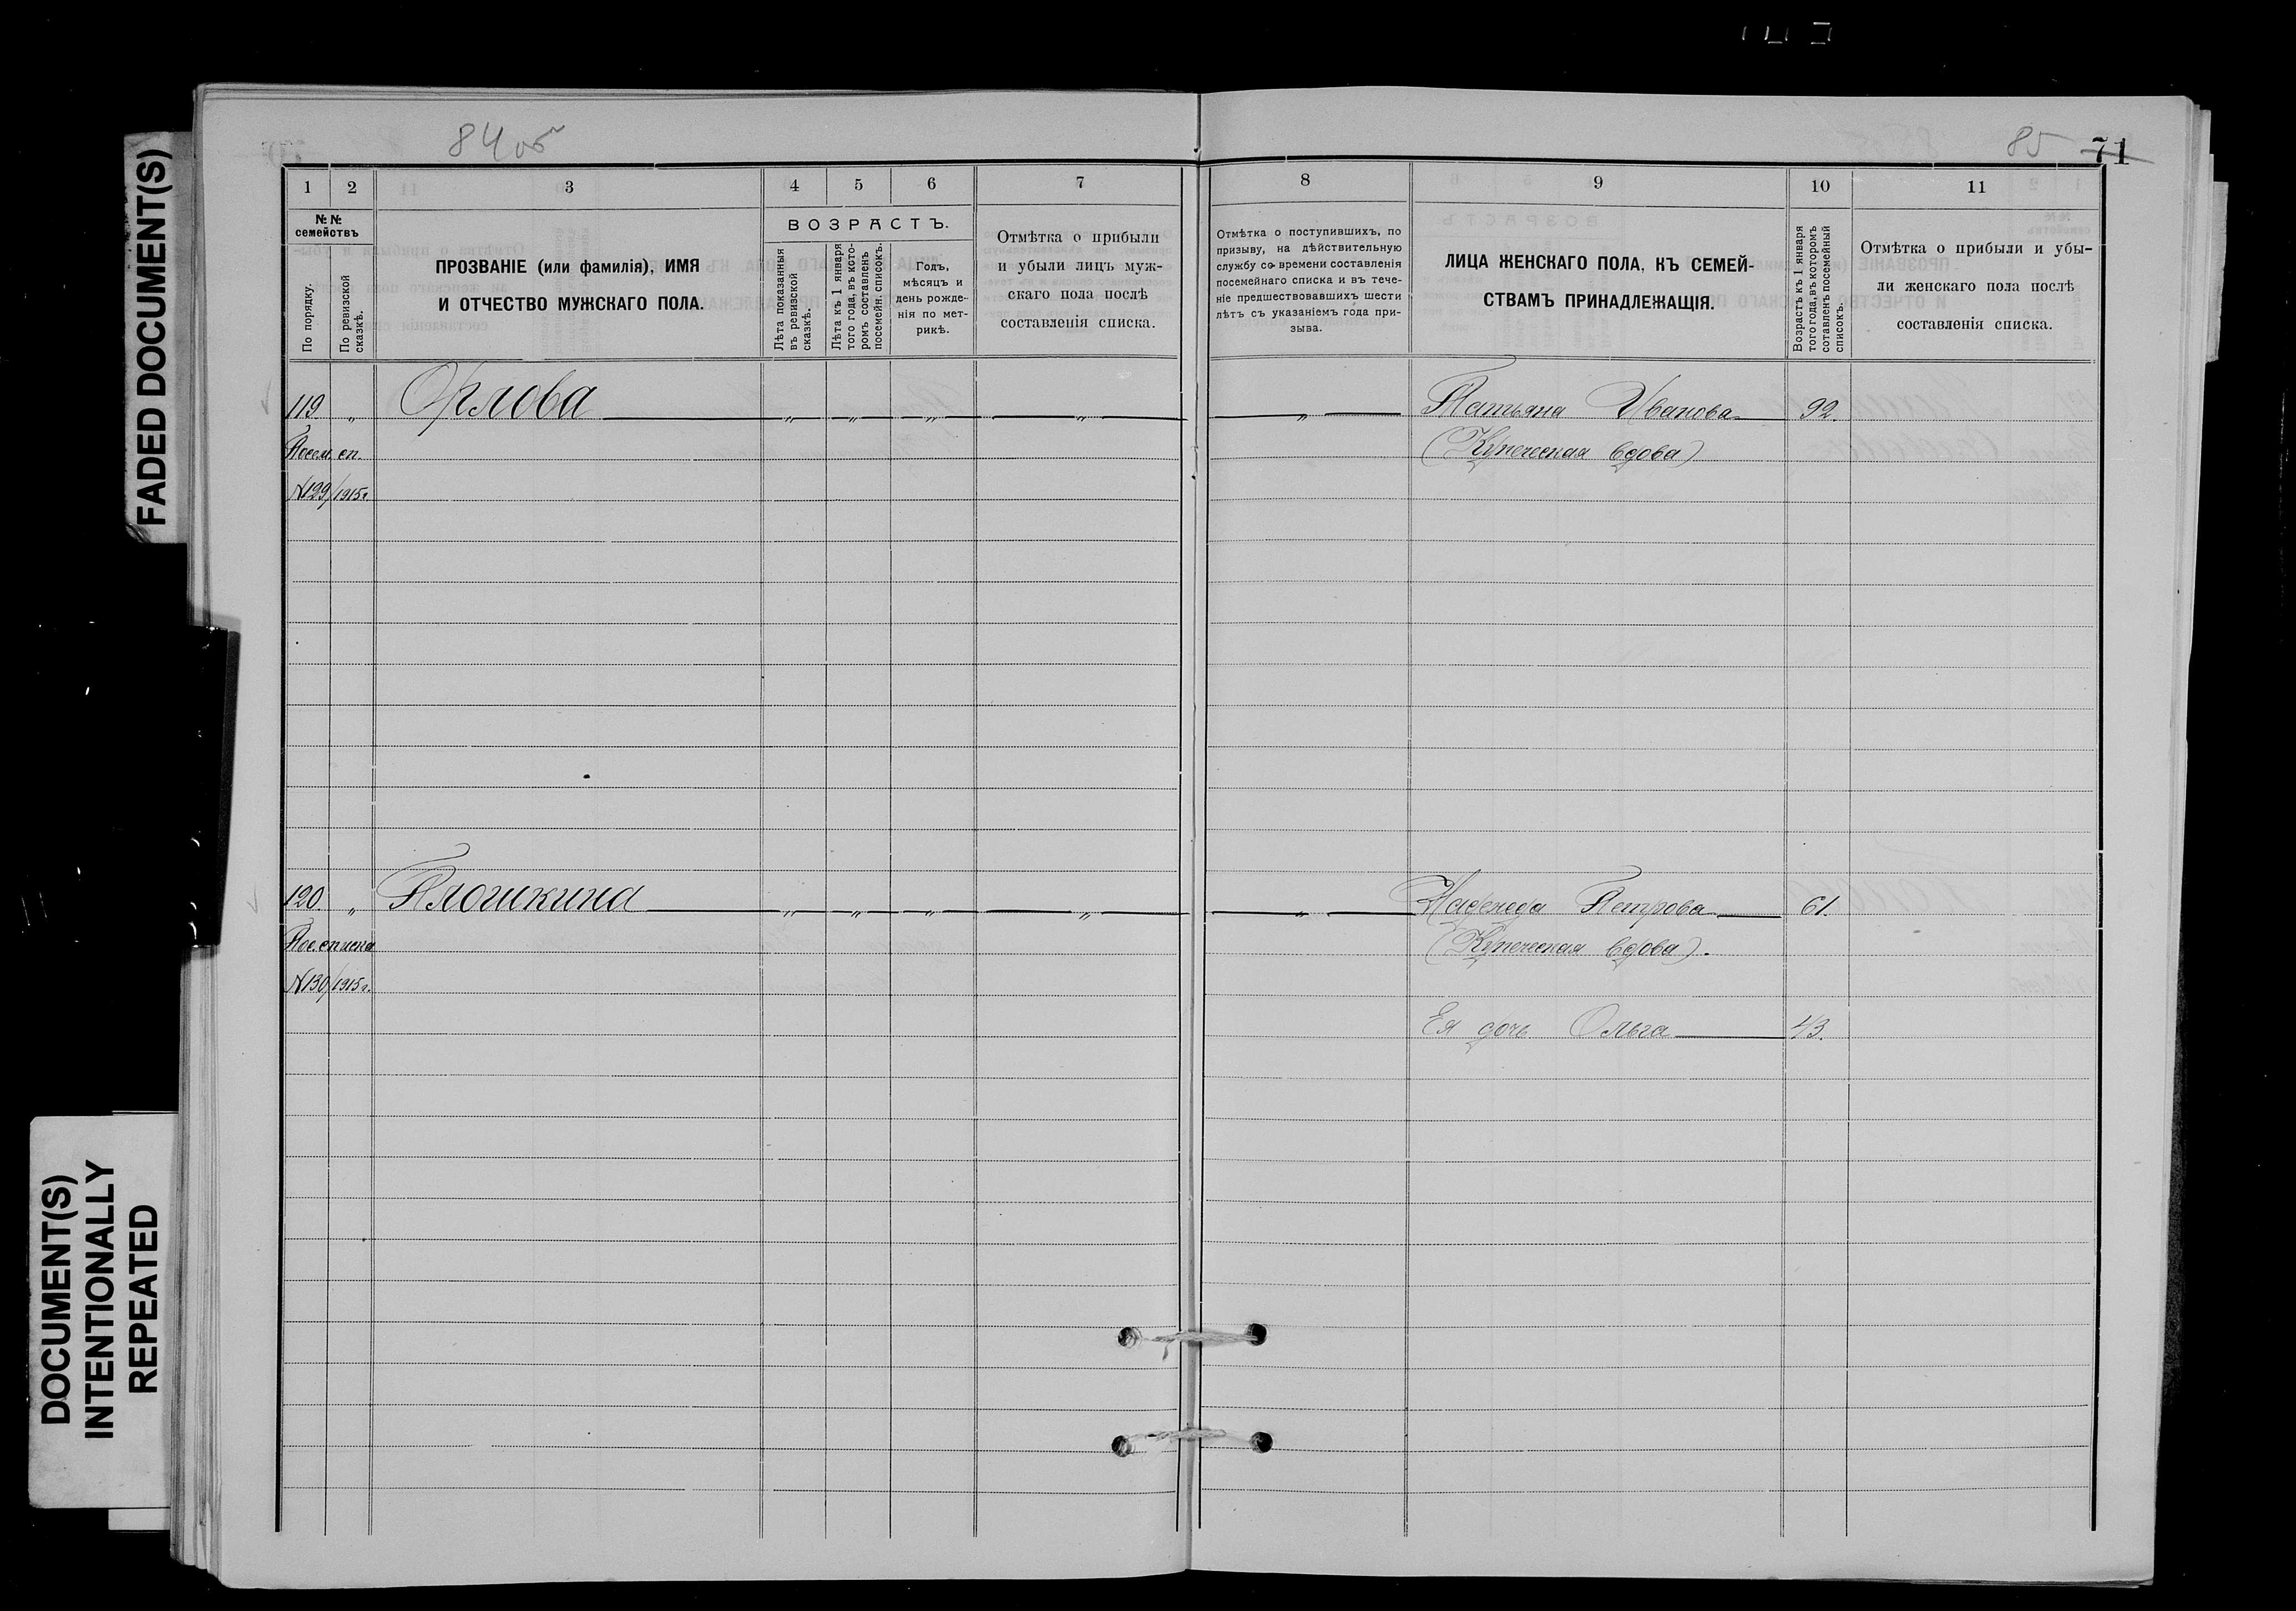 FADED DOCUMENT(S)
DOCUMENT(S)
INTENTIONALLY
REPEATED
84об
85 71
1 2 3 4 5 6 7 8 9 10 11
№№ семействъ
По порядку.
По ревизской сказкѣ.
ПРОЗВАНІЕ (или фамилія), ИМЯ
И ОТЧЕСТВО МУЖСКАГО ПОЛА.
ВОЗРАСТЪ.
Лѣта показанныя
въ ревизской
сказкѣ.
Лѣта къ 1 января
того года, въ кото-
ромъ составленъ
посемейн. списокъ.
Годъ,
мѣсяцъ и
день рожде-
нія по мет-
рикѣ.
Отмѣтка о прибыли
и убыли лицъ муж-
скаго пола послѣ
составленія списка.
Отмѣтка о поступившихъ, по
призыву, на дѣйствительную
службу со времени составленія
посемейнаго списка и въ тече-
ніе предшествовавшихъ шести
лѣтъ съ указаніемъ года при-
зыва.
ЛИЦА ЖЕНСКАГО ПОЛА, КЪ СЕМЕЙ-
СТВАМЪ ПРИНАДЛЕЖАЩІЯ.
Возрастъ къ 1 января
того года, въ которомъ
сотавленъ посемейный
списокъ.
Отмѣтка о прибыли и убы-
ли женскаго пола послѣ
составленія списка.
119. „ Орлова „ „ „ „ „ Татьяна Иванова 92.
Посем. сп. (Купеческая вдова)
№129/1915г.
120. „ Плошкина „ „ „ „ „ Надежда Петрова 61.
Пос. списка (Купеческая вдова).
№130/1915г.
Ея дочь Ольга 43.